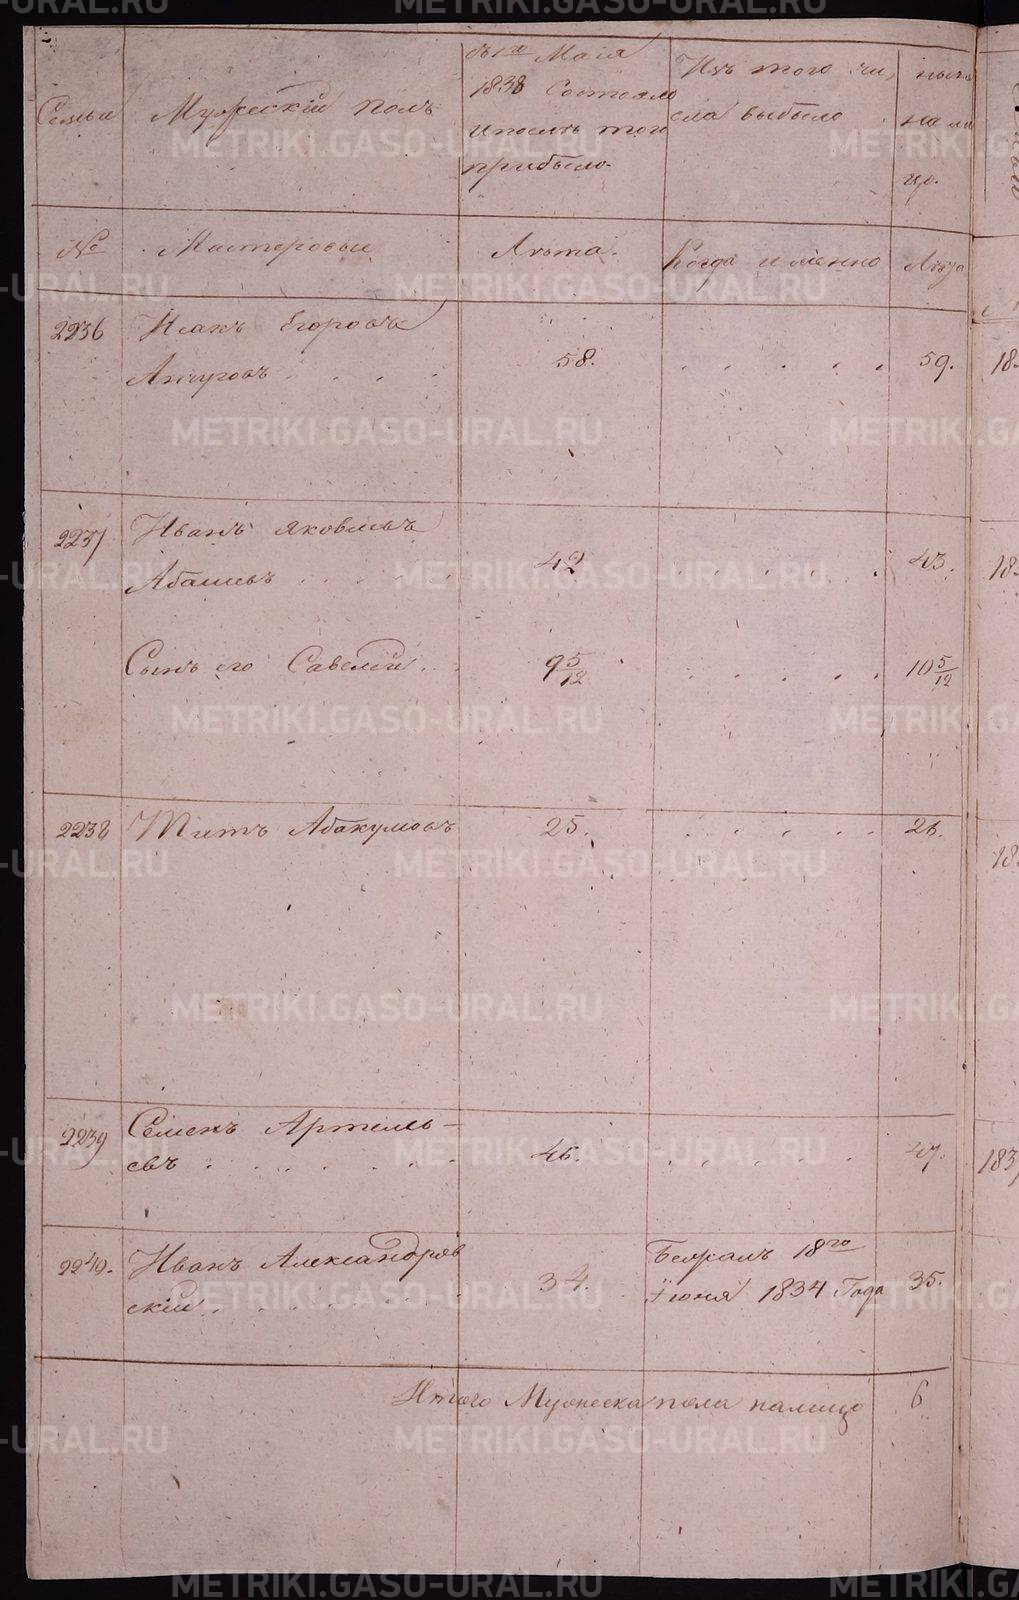 Семьи
Мужескiй полъ
Съ 1го Маiя
1838 Состояло
и послѣ того
прибыло
Изъ того чи,
сла выбыло
нынѣ
на ли
цо.
№
Мастеровые
Лѣта.
Когда именно
Лѣта
2236
Исакъ Егоровъ
58.
59.
18
2237
Иванъ Яковлевъ
42
43.
18
Сынъ его Савелiй
9 5/12
10 5/12
2238
Титъ Абакумовъ
25.
26.
18
2239
Семенъ Артемь-
евъ
46.
47.
183
2240.
Иванъ Александров
скiй
34.
Бежалъ 18го
Iюня 1834 Года
35.
Итого Мужеска пола налицо 6
METRIKI.GASO-URAL.RU